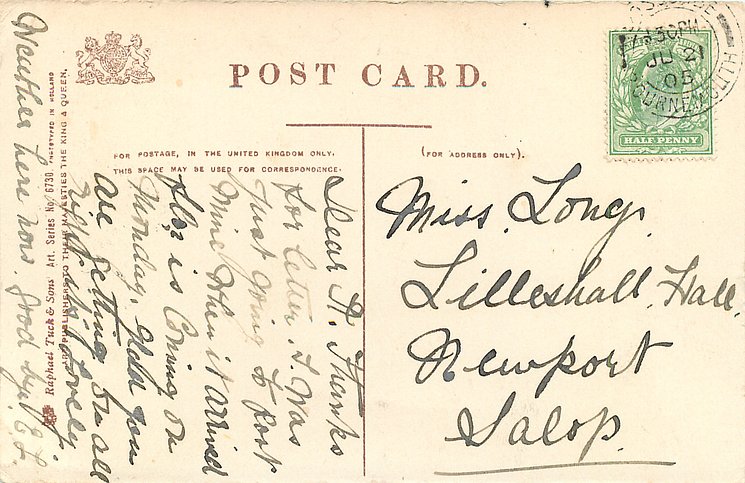 POST CARD.
FOR POSTAGE, IN THE UNITED KINGDOM ONLY,
THIS SPACE MAY BE USED FOR CORRESPONDENCE.
(FOR ADDRESS ONLY).
HALF PENNY
30PM
05
BOURNEMOUTH
Miss. Long.
Lilleshall. Hall.
Newport
Salop.
Dear A. Thanks
for letter. I. Was
Just Going to Post
Mine When it arrived
Flor is Coming on
Monday. Glad you
are getting on all
right its lovely
Weather here now. Good bye. E.L.
Raphael Tuck & Sons Art. Series No. 6730. PHOTOTYPED IN HOLLAND
ART PUBLISHERS TO THEIR MAJESTIES THE KING & QUEEN.